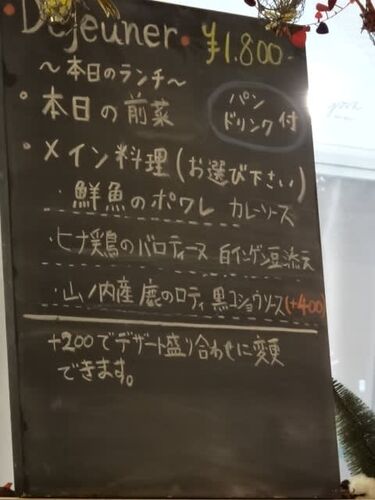 Dejeuner. ¥1.800-
～本日のランチ～
・本日の前菜
パン
ドリンク付
・メイン料理(お選び下さい)
・鮮魚のポワレ カレーソース
・ヒナ鶏のバロティーヌ 白インゲン豆添え
・山ノ内産 鹿のロティ 黒コショウソース(+400)
+200でデザート盛り合わせに変更
できます。